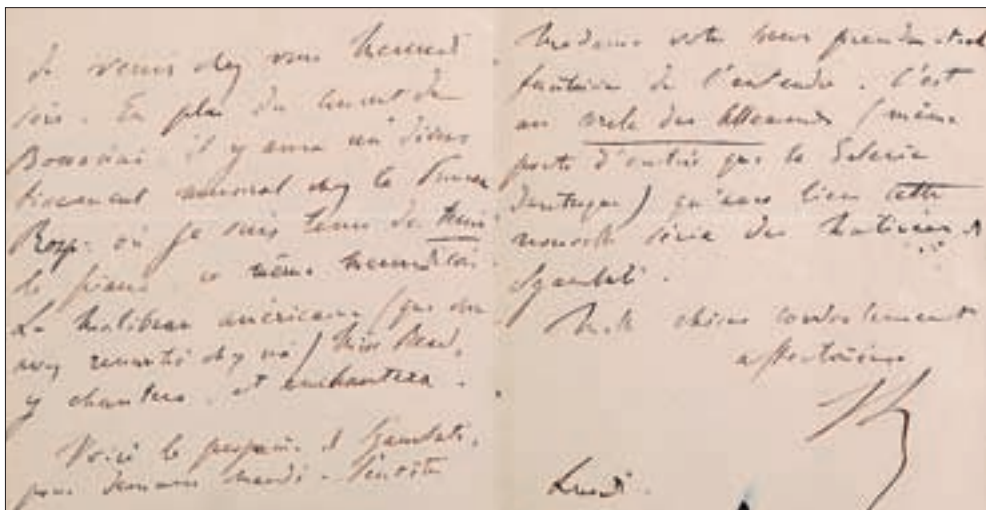 de venir chez vous mercredi
soir. En plus du concert de
il y aura un diver
tissement musical chez le Prince
Rosp. où je suis tenu de tenir
le piano ce même mercredi soir.
La Malibran américaine (que vous
avez rencontré chez moi) Miss
y chantera et enchantera.
Voici le programe de Sgambati,
pour demain Mardi - Peutêtre
Madame votre sœur prendra-t-elle
fantaisie de l'entendre. C'est
au des Allemands (même
porte d'entrée que la Galerie
Dantesque) qu'aura lieu cette
nouvelle série des Matinées de
Sgambati.
Mille choses cordialement
affectueuses
Lundi.